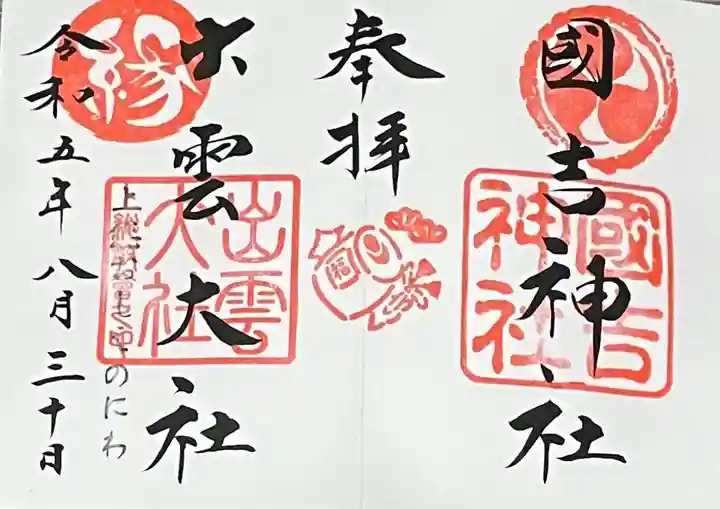 國吉神社
國吉
神社
奉拝
福
出雲大社
出雲
大社
縁
のにわ
令和五年八月三十日